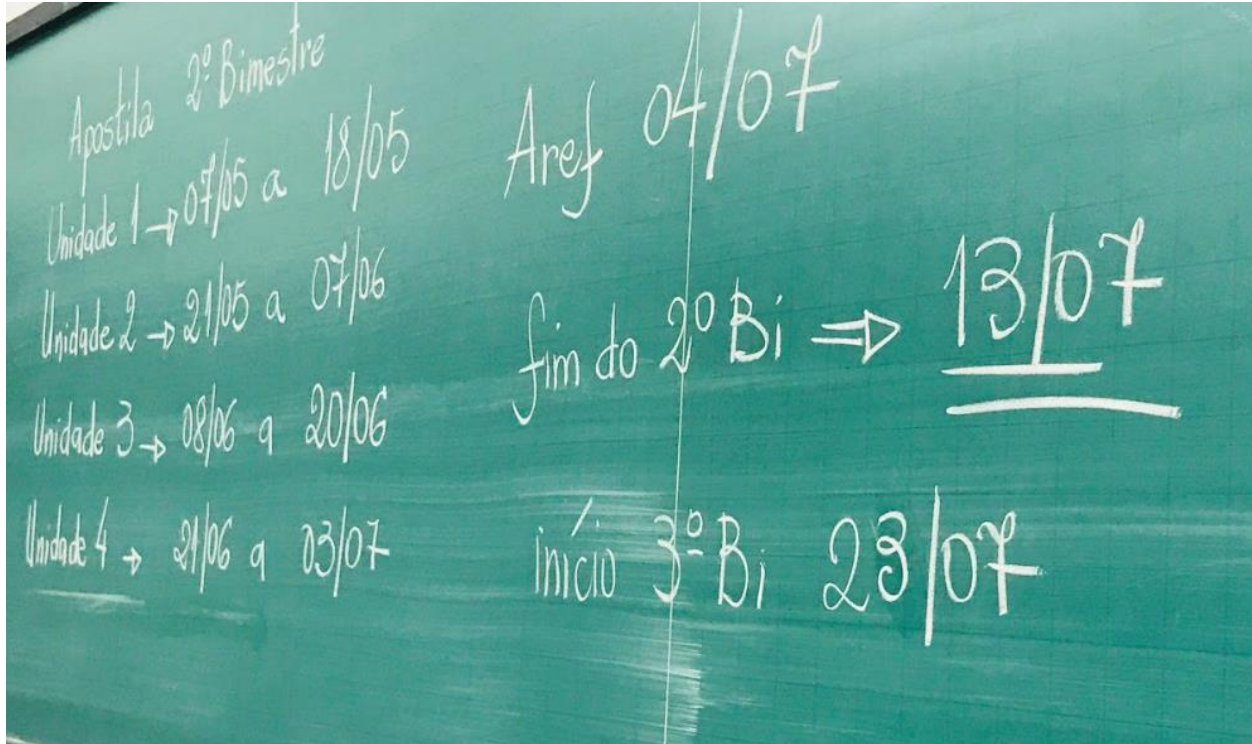 Apostila 2º Bimestre
Unidade 1 → 07/05 a 18/05
Unidade 2 → 21/05 a 07/06
Unidade 3 → 08/06 a 20/06
Unidade 4 → 21/06 a 03/07
Aref 04/07
fim do 2º Bi ⇒ 13/07
início 3º Bi 23/07